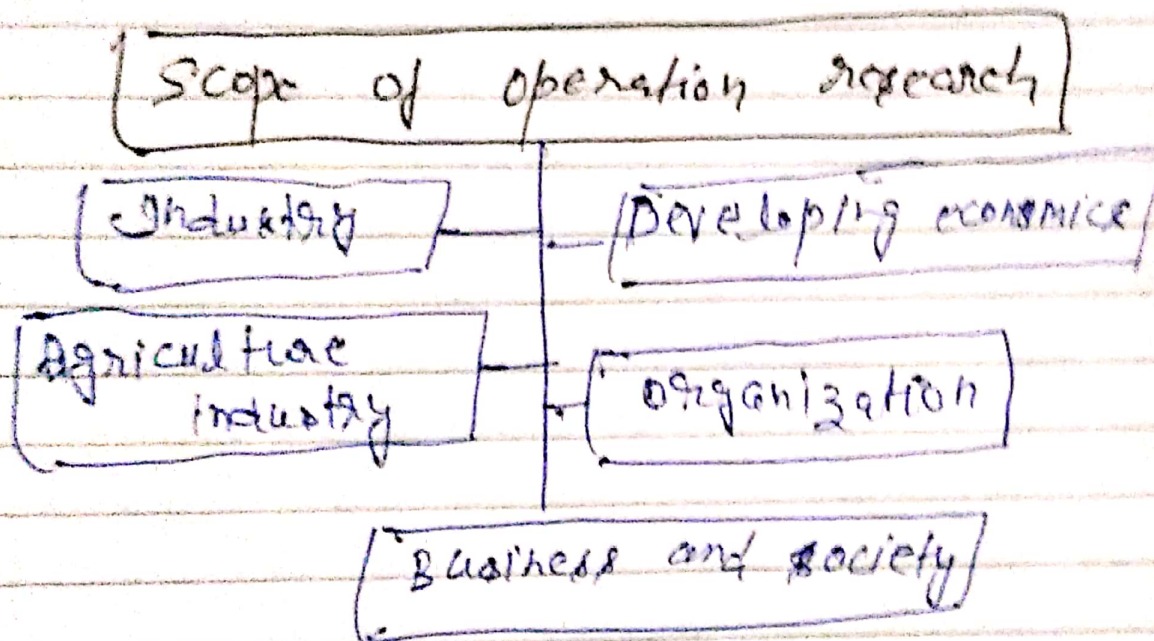 Scope of operation research
Industry
Developing economics
Agriculture
industry
Organization
Business and society